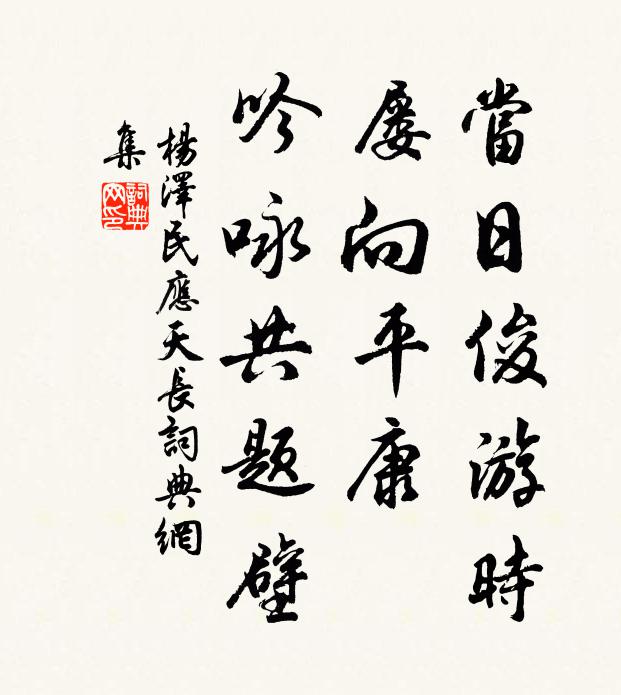 當日俊游時
屡向平康
吟咏共題壁
楊澤民應天長詞典網
集
詞典
网印